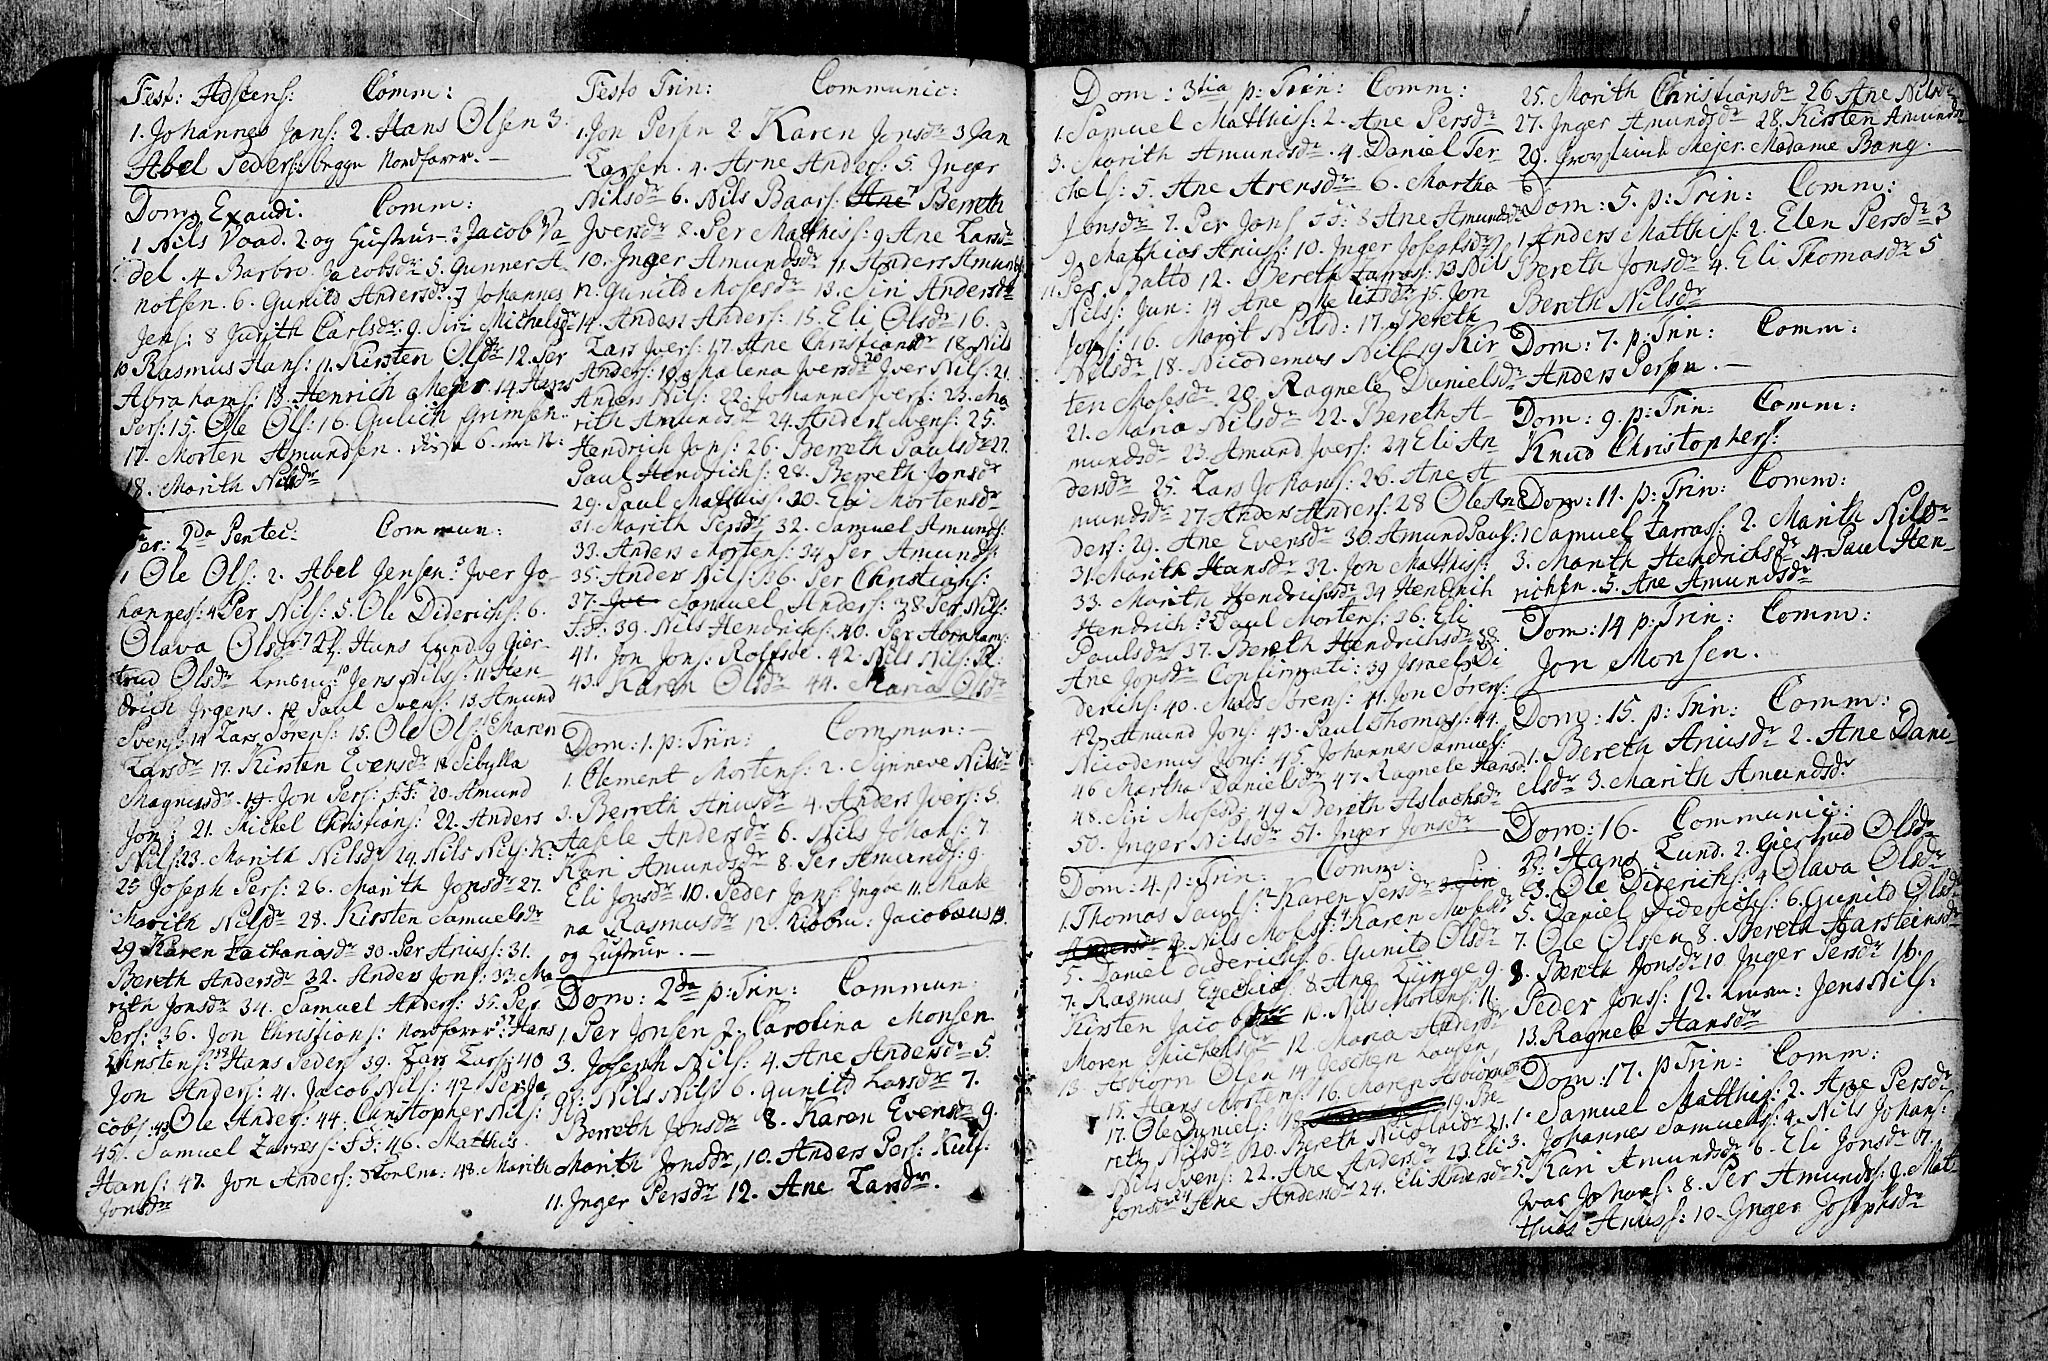 Fest: Adscens: Comm:
1. Johannes Jons: 2. Hans Olsen 3.
Abel Peders: begge Nordfarer. —
Dom: Exaudi. Comm:
1 Nils Vaad. 2 og Hustrue 3 Jacob Va
del. 4 Barbro Jacobsdr 5. Gunner A
notsen. 6. Gunild Andersdr. 7 Johannes
Jens: 8 Judith Carlsdr. 9. Siri Michelsdr
10 Rasmus Hans: 11. Kirsten Olsdr 12. Per
Abrahams: 13. Henrich Mejer. 14. Hans
Pers: 15. Ole Ols: 16. Gulich Grimsen.
17. Morten Amundsen.
18. Marith Nilsdr
Fer: 2da Pentec: Commun:
1 Ole Ols: 2. Abel Jensen 3 Iver Jo-
hannes: 4 Per Nils: 5. Ole Diderichs: 6.
Olava Olsdr 7 Hans Lund 9 Gier-
trud Olsdr 10 Jens Nils: 11 Hen-
drich Jrgens. 12 Paul Svens: 13 Amund
Svens: 14 Lars Sørens: 15. Ole Ols: 16 Karen
Larsdr 17. Kirsten Evensdr 18 Sibylla
Magnusdr. 19 Jon Pers: S.S: 20 Amund
Jons: 21. Michel Christians: 22. Anders
Nils: 23. Marith Nilsdr 24. Nils Nils: K:
25 Joseph Pers: 26. Marith Jonsdr 27.
Marith Nilsdr 28. Kirsten Samuelsdr
29 Karen Zachariasdr 30. Per Arius: 31.
Bereth Andersdr 32. Anders Jons: 33. Ma
rith Jonsdr 34. Samuel Anders: 35. Per
Pers: 36. Jon Christians: Nordfarer: 37 Hans
38 Hans Peders 39. Lars Lars: 40
Jon Anders: 41. Jacob Nils: 42. Per Ja
cobs: 43 Ole Anders: 44. Christopher Nils:
45. Samuel Zarras: S.S: 46. Matthis
Hans: 47. Jon Anders: 48. Marith
Jonsdr
Festo Trin: Communic:
1. Jon Persen 2. Karen Jonsdr 3 Jan
Larsen. 4. Arne Anders: 5. Inger
Nilsdr 6. Nils Baars: Ane 7 Berreth
Iversdr 8. Per Matthis: 9 Ane Larsdr
10. Inger Amundsdr 11. Anders Amunds
12. Gunild Mosesdr 13. Siri Andersdr
14. Anders Anders: 15. Eli Olsdr 16.
Lars Ivers: 17. Ane Christiansdr 18. Nils
Anders: 19. Malena Iversdr 20 Iver Nils: 21.
Anders Nils: 22. Johannes Ivers: 23. Ma
rith Amundsdr 24. Anders Svens: 25.
Hendrich Jons: 26. Berreth Paulsdr 27.
Paul Hendrichs: 28. Berreth Jonsdr
29. Paul Matthis: 30. Eli Mortensdr
31. Marith Persdr 32. Samuel Amunds:
33. Anders Mortens: 34. Per Amunds:
35. Anders Nils: 36. Per Christians:
37. Samuel Anders: 38. Per Nils:
S.S. 39. Nils Hendrichs: 40. Per Abrahams:
41. Jon Jons: 42. Nils Nils:
43. Karen Olsdr 44. Maria Olsdr
Dom: 1. p: Trin: Commun: —
1. Clement Mortens: 2. Synneve Nilsdr
3. Berreth Ariusdr 4. Anders Ivers: 5.
Aasele Andersdr 6. Nils Johans: 7.
Kari Amundsdr 8. Per Amunds: 9.
Eli Jonsdr 10. Peder Jans: Ingve 11. Male
na Rasmusdr 12. Jacobæus 13.
og Hustrue. —
Dom: 2da p: Trin: Commun:
1. Per Jonsen 2. Carolina Monsen
3. Joseph Nils: 4. Ane Andersdr 5.
Nils Nils 6. Gunild Larsdr 7.
Berreth Jonsdr 8. Karen Evensdr 9.
Marith Jonsdr 10. Anders Pers:
11. Inger Persdr 12. Ane Larsdr.
Dom: 3tia p: Trin: Comm:
1. Samuel Matthis: 2. Ane Persdr
3. Marith Amundsdr. 4. Daniel Per
chels: 5. Ane Arensdr 6. Martha
Jonsdr 7. Per Jons S.S: 8 Ane Amundsdr
9. Mathias Arius: 10. Inger Josephsdr
11. Per Balto 12. Bereth Zarras: 13 Nils
Nils: Jun: 14 Ane 15. Jon
Jons: 16. Marit Nilsd: 17. Bereth
Nilsdr 18. Nicodemus Nils 19 Kir
ten Mosesdr 20. Ragnele Danielsdr
21. Maria Nilsdr 22. Bereth A-
mundsdr 23. Amund Ivers: 24 Eli An-
dersdr 25. Lars Johans: 26. Ane A
mundsdr 27 Anders Anders: 28 Ole An
ders: 29. Ane Evensdr 30. Amund Pauls:
31. Marith Hansdr 32. Jon Matthis:
33. Marith Hendrichsdr 34 Hendrich
Hendrich: 35 Paul Mortens: 36. Eli
Paulsdr 37. Bereth Hendrichsdr 38.
Ane Jonsdr Confirmati: 39 Israel Di
derichs: 40. Mads Sørens: 41. Jon Sørens:
42. Amund Jons: 43. Paul Thomas: 44.
Nicodemus Jons: 45. Johannes Samuels:
46 Martha Danielsdr 47 Ragnele Hansd
48. Siri Moses: 49 Bereth Aslachsdr
50. Inger Nilsdr 51. Inger Jonsdr
Dom: 4. p: Trin: Comm:
1. Thomas Pauls: 2 Karen Persdr
Andersdr 3. Nils Moses: 4. Karen Mosesdr
5. Daniel Diderichs: 6. Gunild Olsdr
7. Rasmus Ezechias 8 Ane Lünge 9.
Kirsten Jacobsdr 10. Nils Mortens: 11.
Maren Michelsdr 12. Maria Andersdr
13. Asbiorn Olsen 14 Jeschen Lausen
15. Hans Mortens: 16. Maren
17. Ole Daniel: 18. 19. Be
reth Nilsdr 20. Bereth Nicolaidr 21.
Nils Svens: 22. Ane Andersdr 23 Eli
Jonsdr Ane Andersdr 24. Eli Andersdr
25. Marith Christiansdr 26 Ane Nilsdr
27. Inger Amundsdr 28. Kirsten Amundsdr
29. Mejer. Madame Bang.
Dom: 5. p: Trin: Comm:
1. Anders Mathis: 2. Elen Persdr 3
Bereth Jonsdr 4. Eli Thomasdr 5
Bereth Nilsdr
Dom: 7. p: Trin: Comm:
Anders Persen. —
Dom: 9. p: Trin: Comm:
Knud Christophers:
Dom: 11. p: Trin: Comm:
1 Samuel Zarras: 2. Marith Nilsdr
3. Marith Hendrichsdr 4 Paul Hen-
richsn. 5. Ane Amundsdr
Dom: 14 p: Trin: Comm:
Jon Monsen.
Dom: 15. p: Trin: Comm:
1. Bereth Ariusdr 2. Ane Dani-
elsdr 3. Marith Amundsdr
Dom: 16. Communic:
1 Hans Lund. 2. Giertrud Olsdr
3. Ole Diderichs: 4 Olava Olsdr
5. Daniel Diderichs: 6. Gunild Olsdr
7. Ole Olsen 8. Bereth Harsteensdr
8. Bereth Jonsdr 10 Inger Persdr 16.
Peder Jons: 12. Jens Nils:
13. Ragnele Hansdr
Dom: 17. p Trin: Comm:
1. Samuel Matthis: 2. Ane Persdr
3. Johannes Samuels: 4. Nils Johans:
5. Kari Amundsdr 6. Eli Jonsdr 7.
Ivar Johans: 8. Per Amunds: 9. Mat
thias Arius: 10. Inger Josephsdr